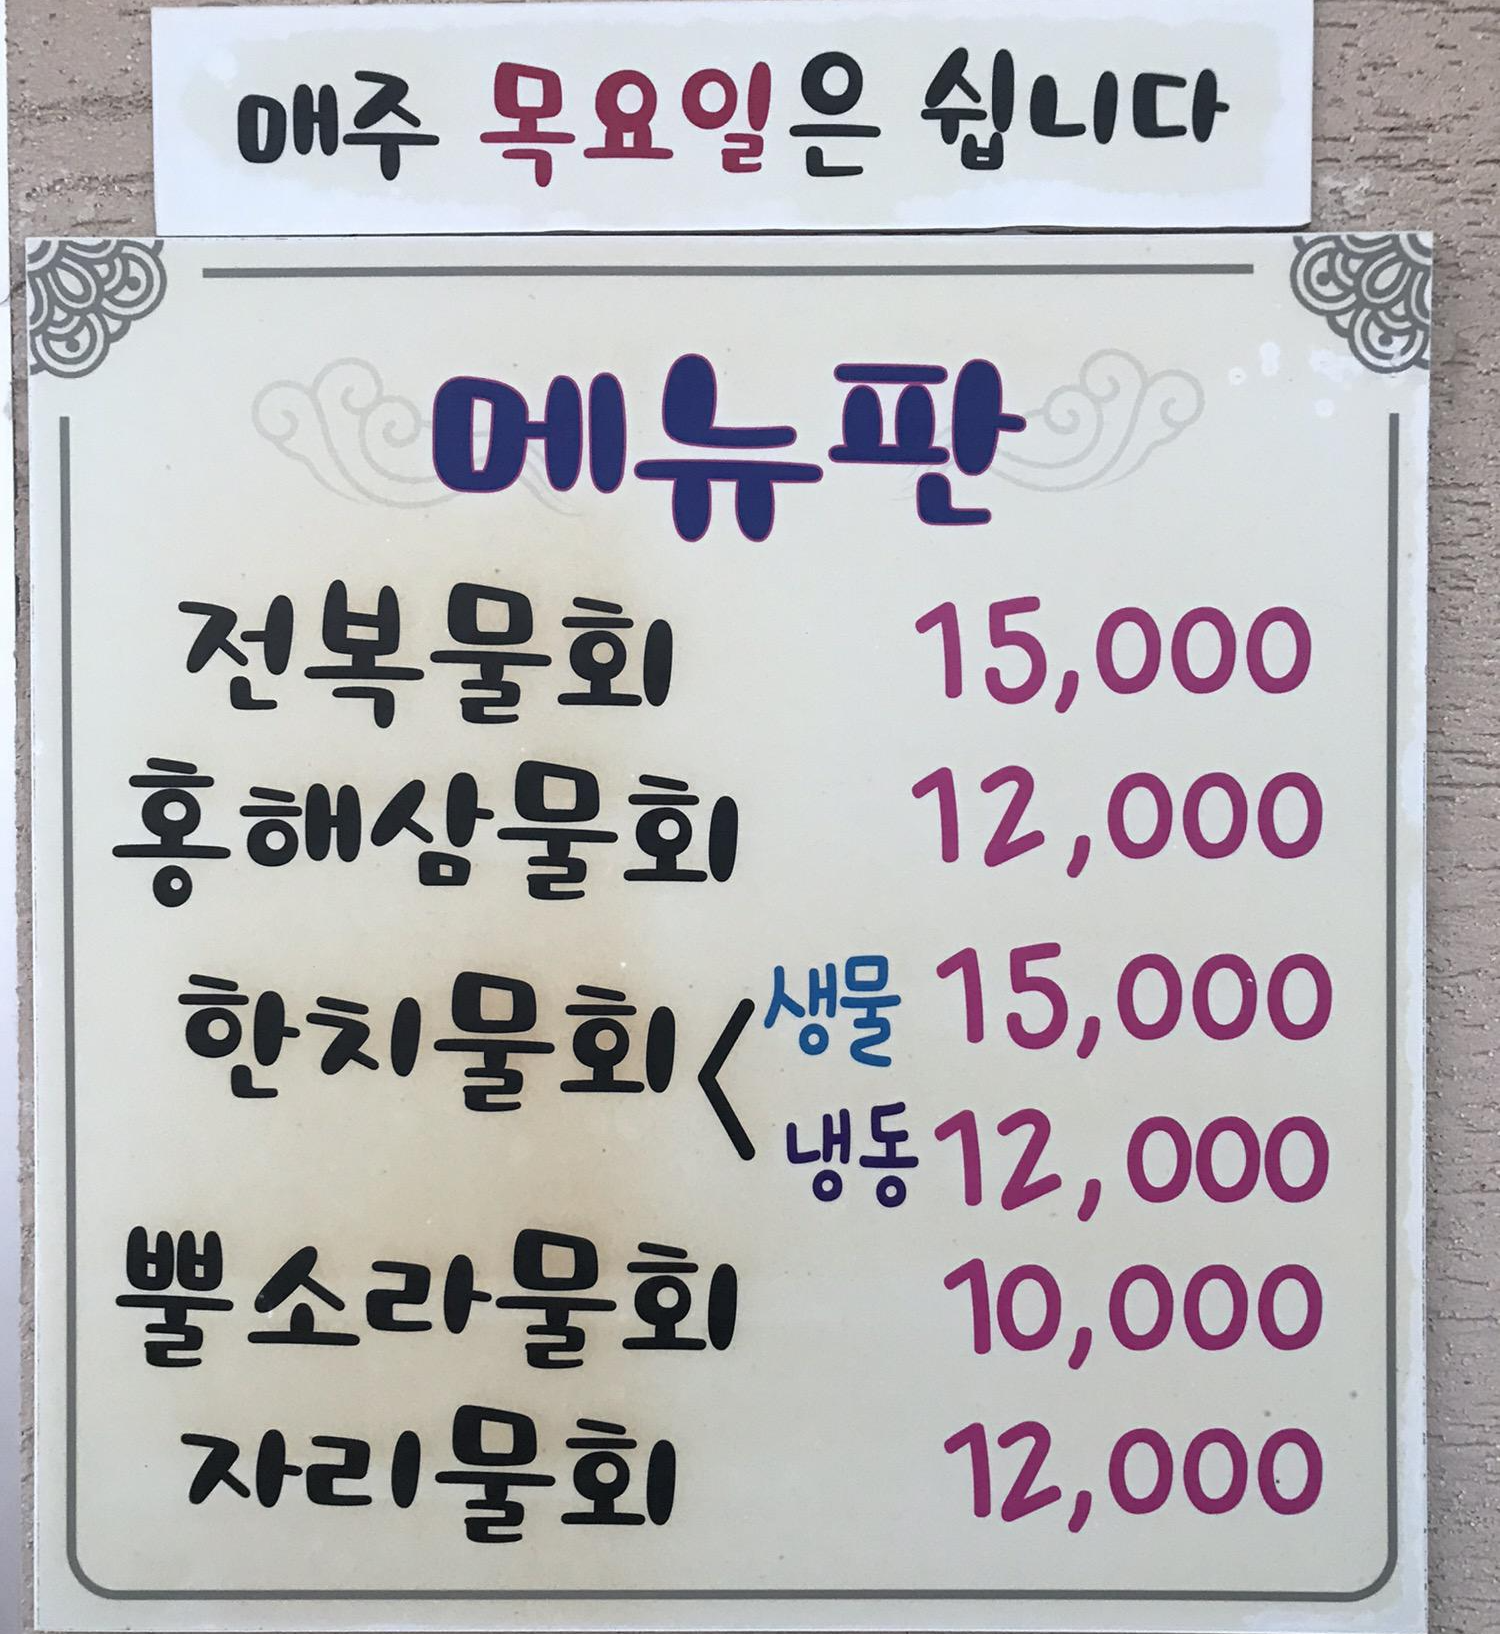 매주 목요일은 쉽니다
메뉴판
전복물회 15,000
홍해삼물회 12,000
한치물회 < 생물 15,000
냉동 12,000
뿔소라물회 10,000
자리물회 12,000